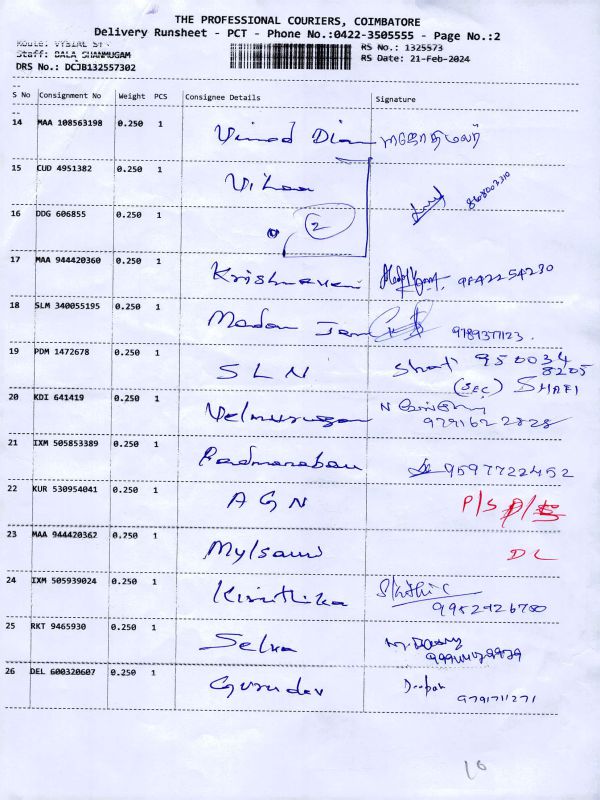 THE PROFESSIONAL COURIERS, COIMBATORE
Delivery Runsheet - PCT - Phone No.:0422-3505555 - Page No.:2
Staff: BALA SHANMUGAM
DRS No.: DCJB132557302
RS No.: 1325573
RS Date: 21-Feb-2024
S No Consignment No Weight PCS Consignee Details Signature
14 MAA 108563198 0.250 1 Vinod Dian
15 CUD 4951382 0.250 1 Vihaa
16 DDG 606855 0.250 1 2
17 MAA 944420360 0.250 1 Krishnaveni 9842254230
18 SLM 340055195 0.250 1 Madan Jam 9789371123.
19 PDM 1472678 0.250 1 SLN 950034
8205
(SEC) SHAFI
20 KDI 641419 0.250 1 Velmurugan
9791622828
21 IXM 505853389 0.250 1 Padmanaban 9597722452
22 KUR 530954041 0.250 1 AGN P/S
23 MAA 944420362 0.250 1 Mylsami DL
24 IXM 505939024 0.250 1 Kiruthika
9952926780
25 RKT 9465930 0.250 1 Selva
26 DEL 600320607 0.250 1 Gurudev Deepak
9791711271